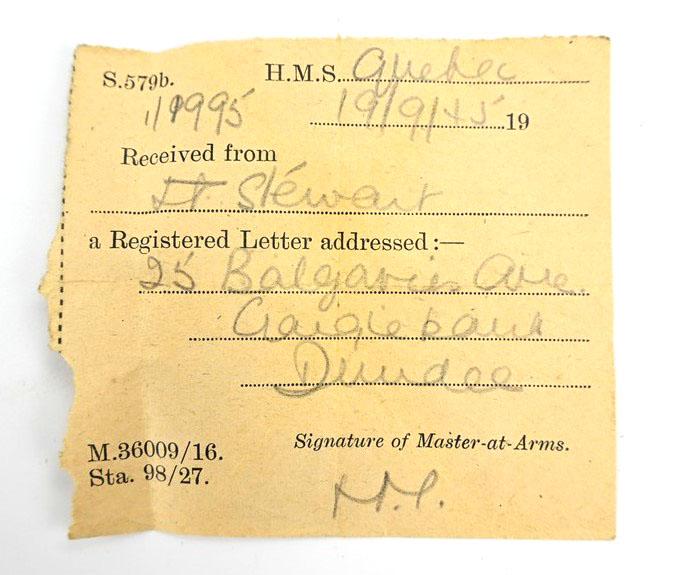 S.579b. H.M.S. Quebec
1/9995 19/9/45 19
Received from
Lt Stewart
a Registered Letter addressed:—
25 Balgavies Ave.
Craigiebank
Dundee
M.36009/16. Signature of Master-at-Arms.
Sta. 98/27.